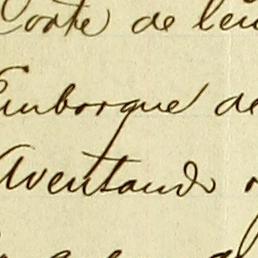 Corte de leu
Emborque de
Aventando